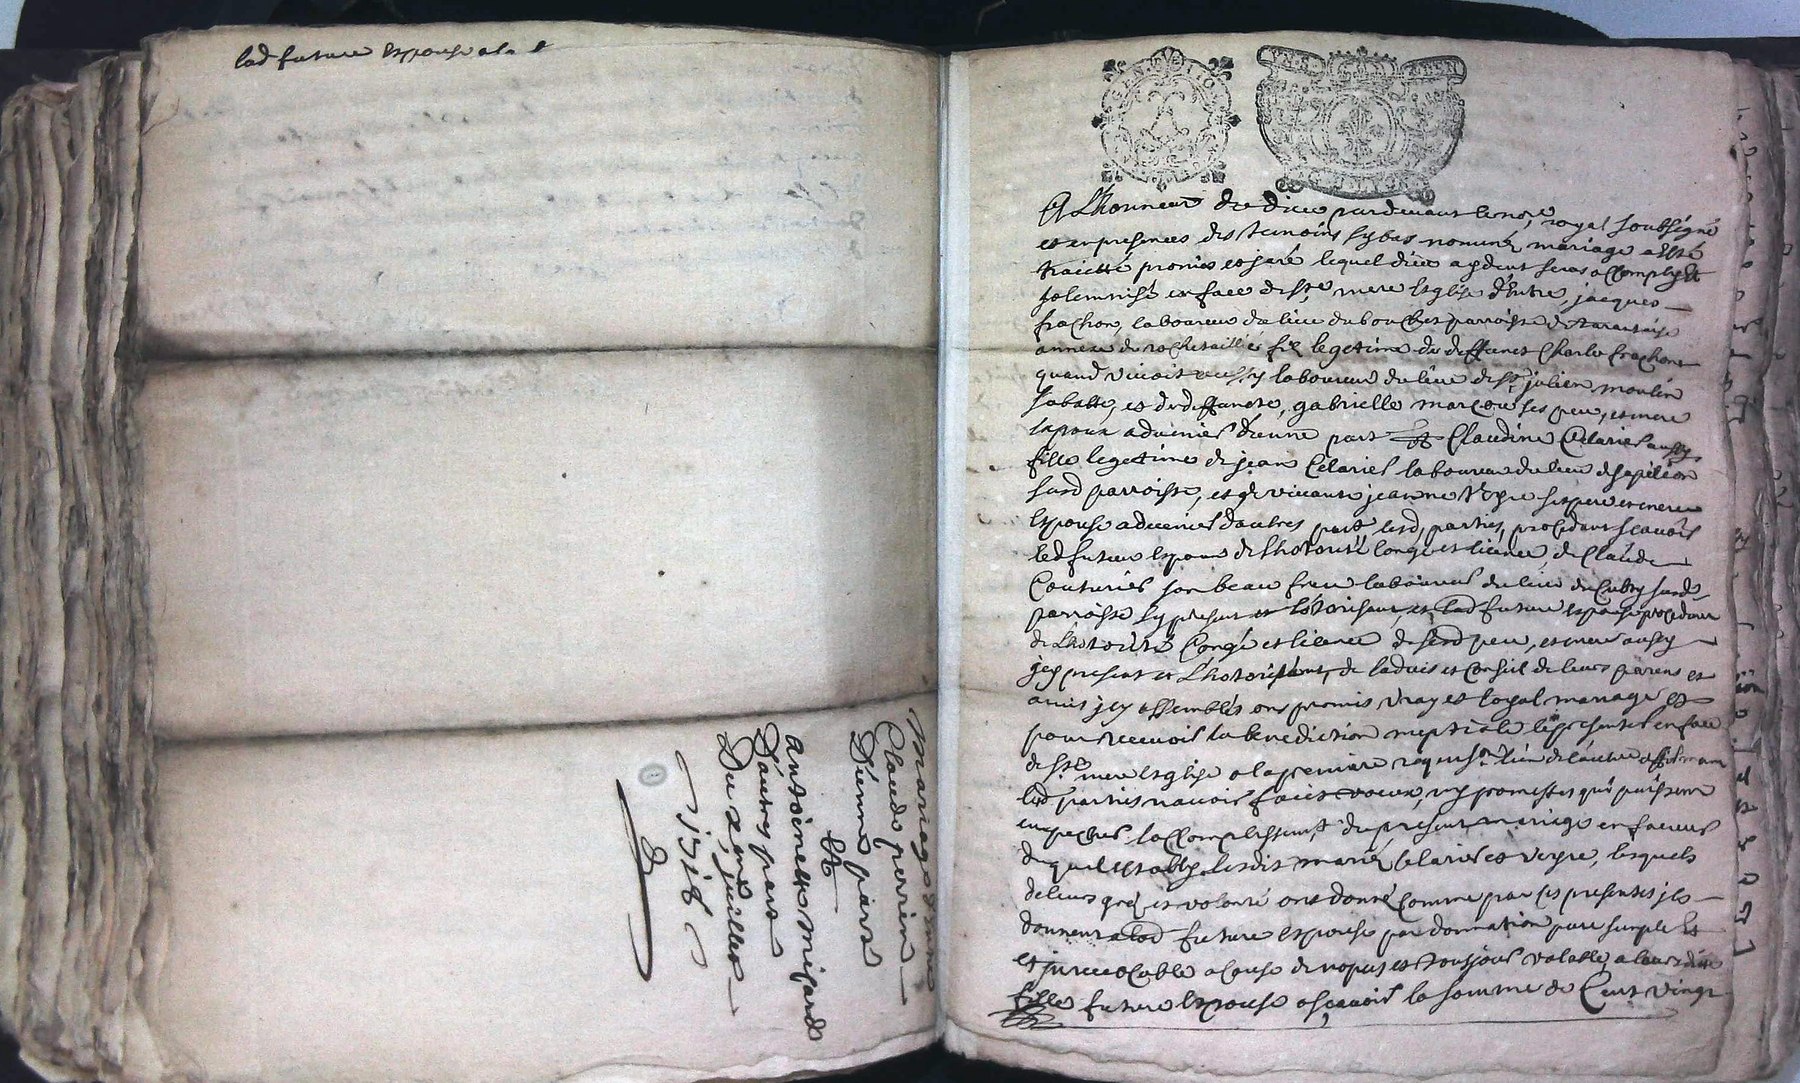 lad future espouse a la
mariage d'une
Claude perrin
D'unne part
Et
antoinette misard
D'autres part
Du 2 juillet
1718
GEN
A L'honneur de dieu pardevant le nore royal soubsigné
et en presences des temoins sy bas nommés mariage a esté
traicté promis et juré lequel dieu aydant seras accomply et
solemnisé en face de ste mere Esglise d'Entre jacques
frachon laboureur du lieu du bouchet parroisse de tarantaise
annexe de rochetaillée filz legetime de deffunct Charle frachon
quand vivoit aussy laboureur du lieu de st julien moulin
sabatte, et de deffuncte gabrielle marcou ses pere et mere
Espoux advenir d'unne part Et Claudine Celarier aussy
fille legettime de jean Celarier laboureur du lieu
susd parroisse, et de vivante jeanne Veyre ses pere et mere
Espouse advenir d'autres part lesd parties, procedant scavoir
led futur Espoux de l'hotorité congé et licence de Claude
Couturier son beau frere laboureur du lieu de susd
parroisse sy present et l'otorisant, et lad future espouse procedant
de l'hotorité Congé et licence de sesd pere, et mere aussy
jcy present et L'hotorisant, de ladvis et Conseil de leurs parens et
amis jcy assemblés ont promis vray et loyal mariage et
pour recevoir la benediction nuptiale se presenter en face
de ste mere Esglise a la premiere requise l'un de l'autre affirmant
lesd parties navoir faict voeux, ny promesses qui puissent
empecher laccomplissement du present mariage en faveur
de quel establys lesdit mariés Celarier et veyre, lesquels
de leurs gré et volonté ont donné Comme par ces presentes jls
donnent a lad future espouse par donnation pure simple Et
et jrrevocable a cause de nopces et tousjour valable a leurdite
fille future Espouse ascavoir la somme de Cent vingt